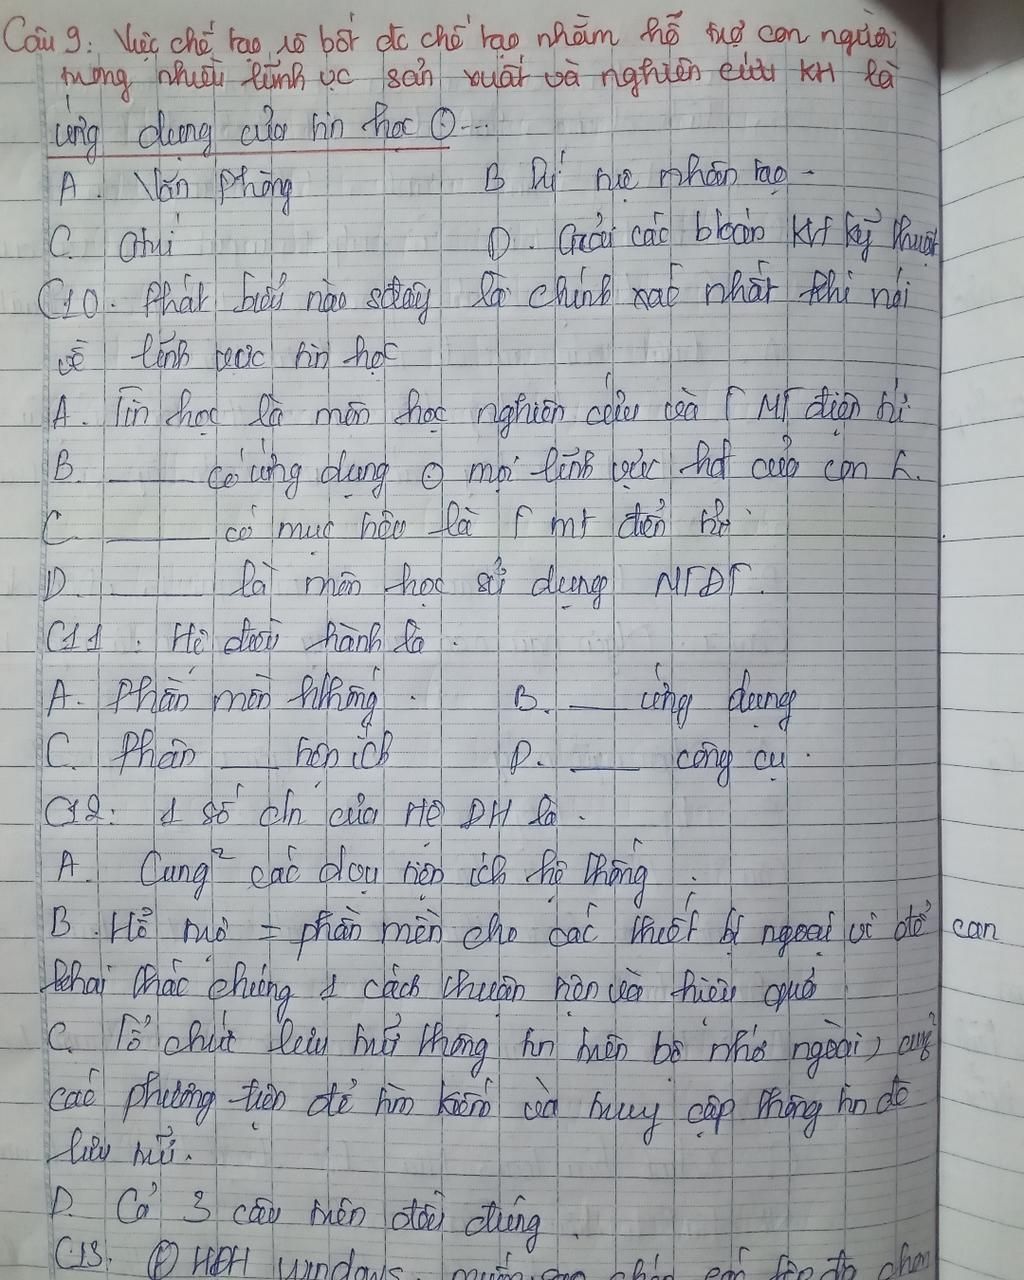 Câu 9: Việc chế tạo rô bốt đc chế tạo nhằm hỗ trợ con người
trong nhiều lĩnh vực sản xuất và nghiên cứu KH là
ứng dụng của tin học ...
A. Văn phòng B Trí tuệ nhân tạo
C. Giải trí D. Giải các btoán KHKT kỹ thuật
C10. Phát biểu nào sđây là chính xác nhất khi nói
về lĩnh vực tin học
A. Tin học là môn học nghiên cứu MT điện tử
B. ____ có ứng dụng mọi lĩnh vực hđ của con
C. ____ có mục tiêu là mt điện tử
D. ____ là môn học sử dụng MTĐT.
C11. Hệ điều hành là
A. Phần mềm hthống B. ___ ứng dụng
C. Phần ___ tiện ích D. ___ công cụ
C12: 1 số cn của Hệ ĐH là
A. Cung² các dvụ tiện ích hệ thống
B. Hỗ trợ = phần mềm cho các thiết bị ngoại vi để can
khai thác chúng 1 cách thuận tiện và hiệu quả
C. Tổ chức lưu trữ thông tin trên bộ nhớ ngoài, cung²
các phương tiện để tìm kiếm và truy cập thông tin đc
lưu trữ.
D. Cả 3 câu trên đều đúng
C13. HĐH windows, muốn